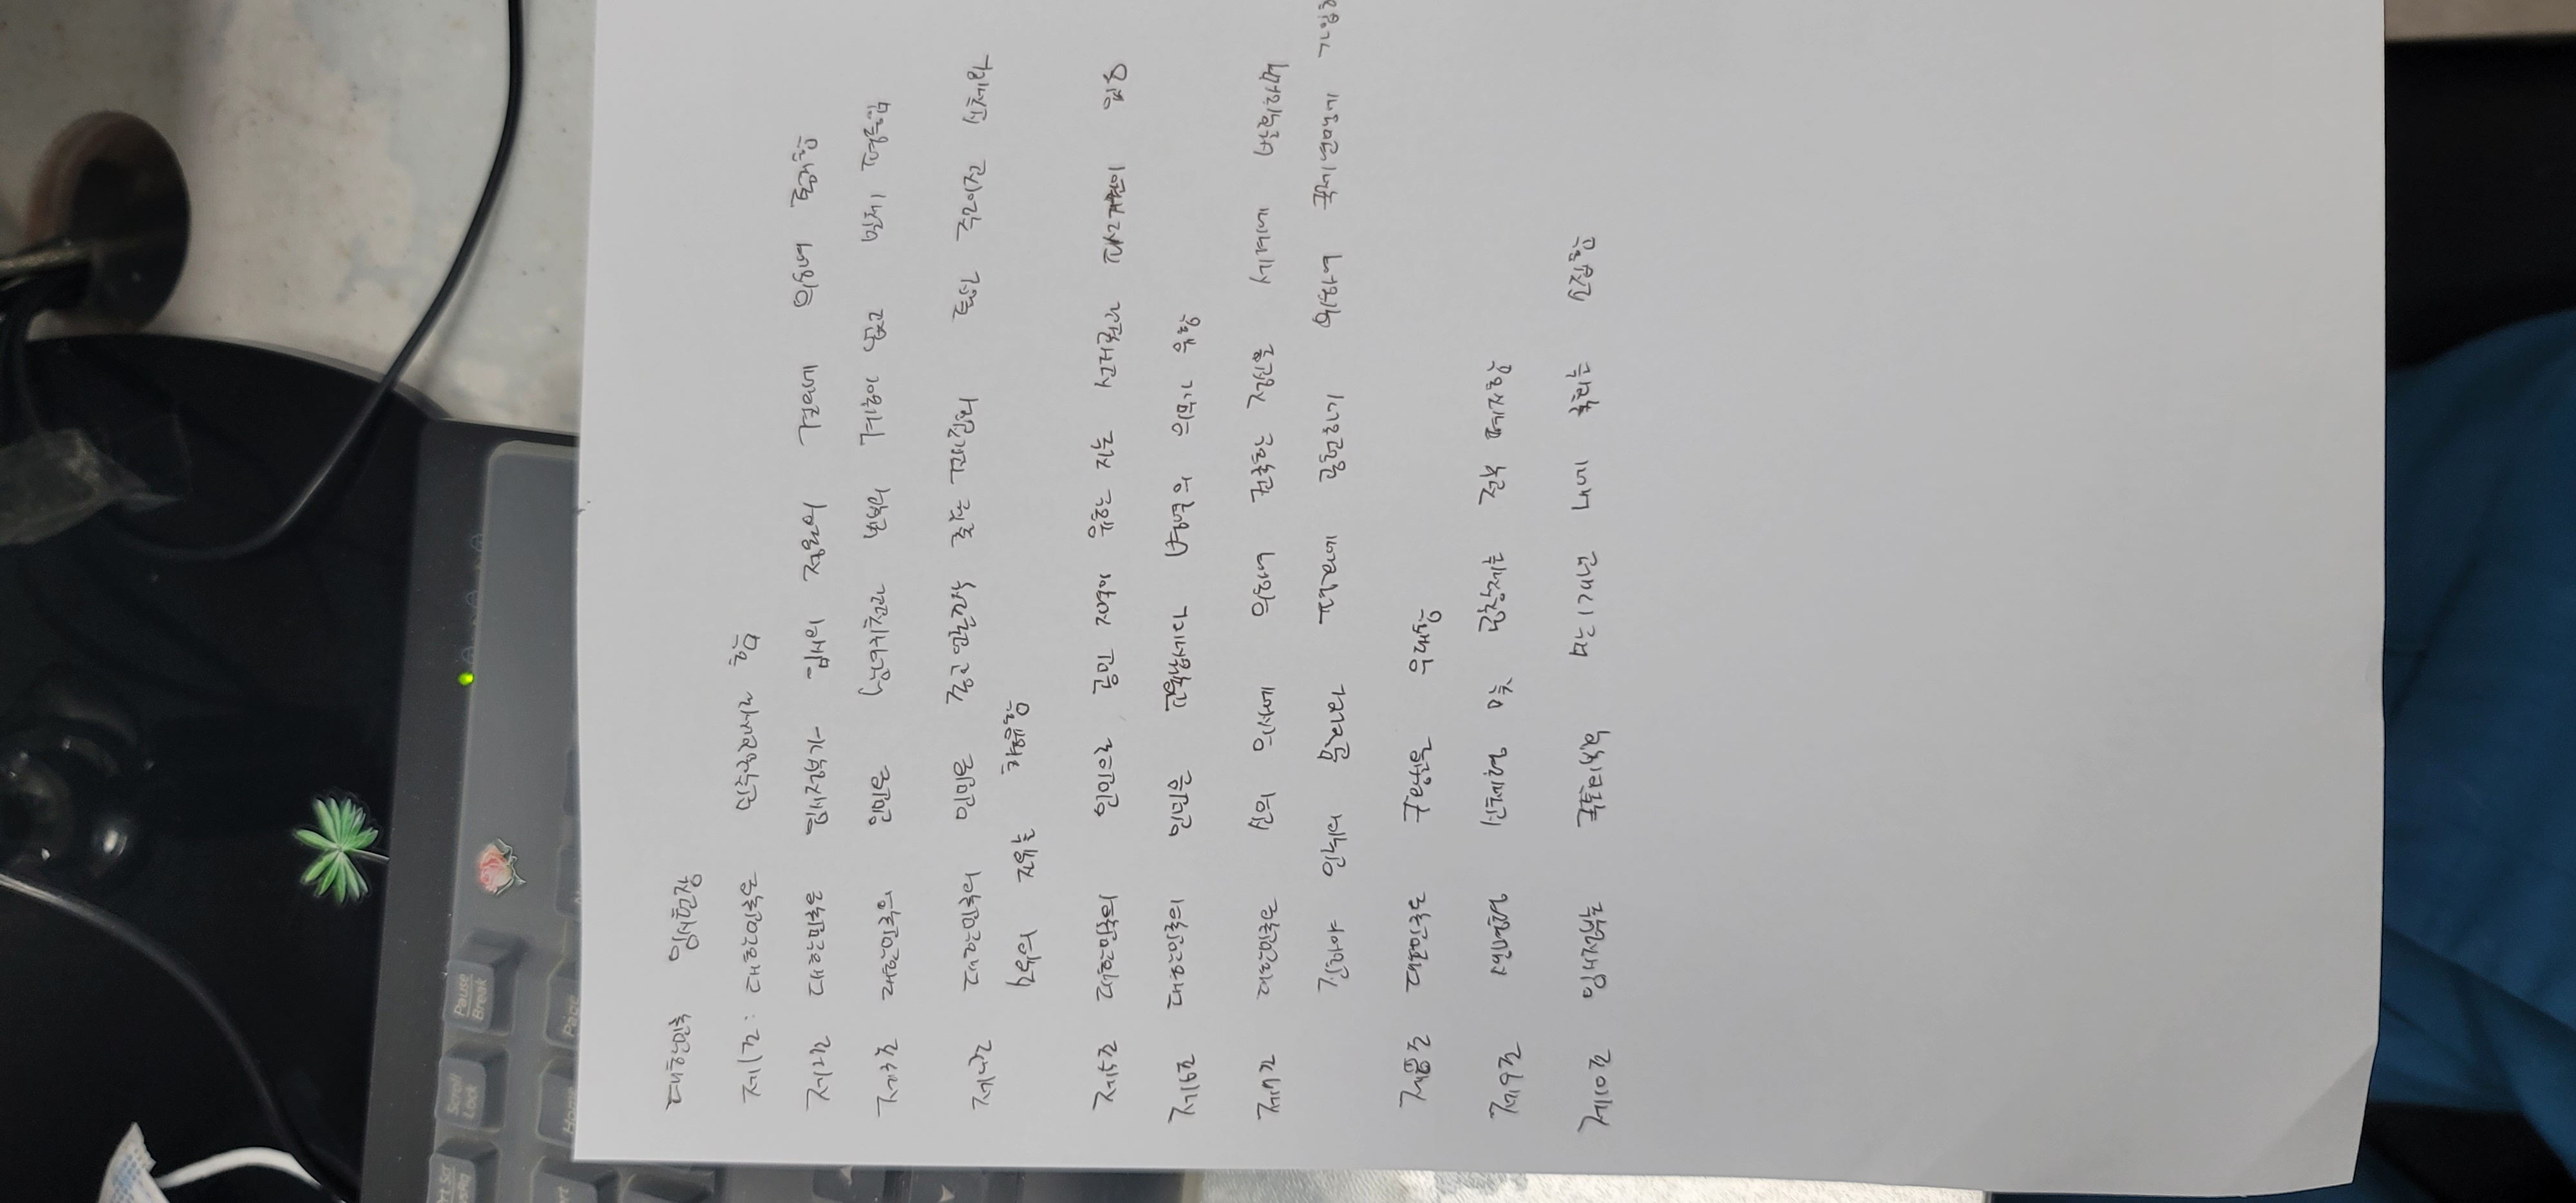 대한민국 임시헌장
제1조: 대한민국은 민주공화제로 함
제2조 대한민국은 임시정부가 임시의 정원의 결의에 의하여 통치함
제3조 대한민국의 인민은 남녀귀천과 빈부의 계층이 없고 일체 평등함
제4조 대한민국의 인민은 종교 언론 저작 출판 결사 집회 통신 주소이전 신체와
소유의 자유를 향유함
제5조 대한민국의 인민으로 공민 자격이 유하는 자는 선거권과 피선거권이 있음
제6조 대한민국의 인민은 교육 납세와 병역의 의무가 유함
제7조 대한민국은 신의 의사에 의하여 건국한 정신을 세계에 발휘하며
진하야 인류의 문화와 평화에 공헌하기 위하여 국제연맹에
제8조 대한민국은 구황실을 우대함
제9조 생명형 신체형 및 공창제를 전부 폐지함
제10조 임시정부는 국토회복후 만1개년 내에 국회를 소집함
Pause
Break
Scroll
Lock
Home
Page